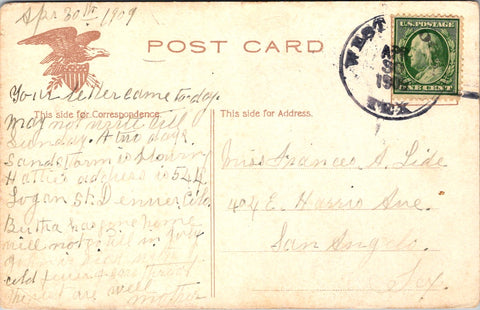 Apr 30th 1909
POST CARD
WEST
APR
30
TEX
U.S. POSTAGE
ONE CENT
This side for Correspondence.
This side for Address.
Your letter came to-day.
May not write till
Sunday. A two days
Sandstorm is blowing
Hattie's address is
Logan St. Denver Colo.
Bertha has gone home
will not go till in July
cold fever sore throat
the rest are well
Mother
Miss Frances A. Lide
404 E. Harris Ave.
San Angelo.
Tex.